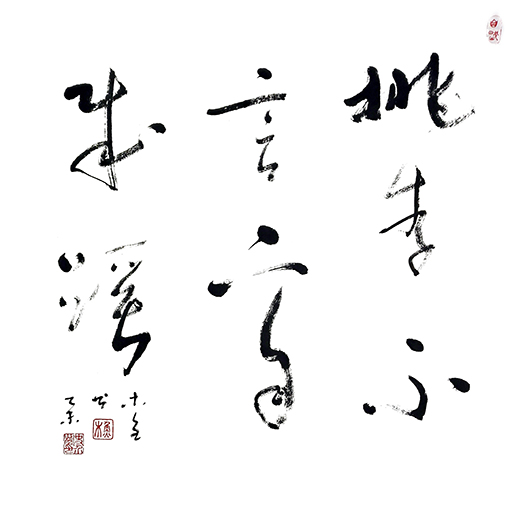 桃李不
言下自
成蹊
乙未